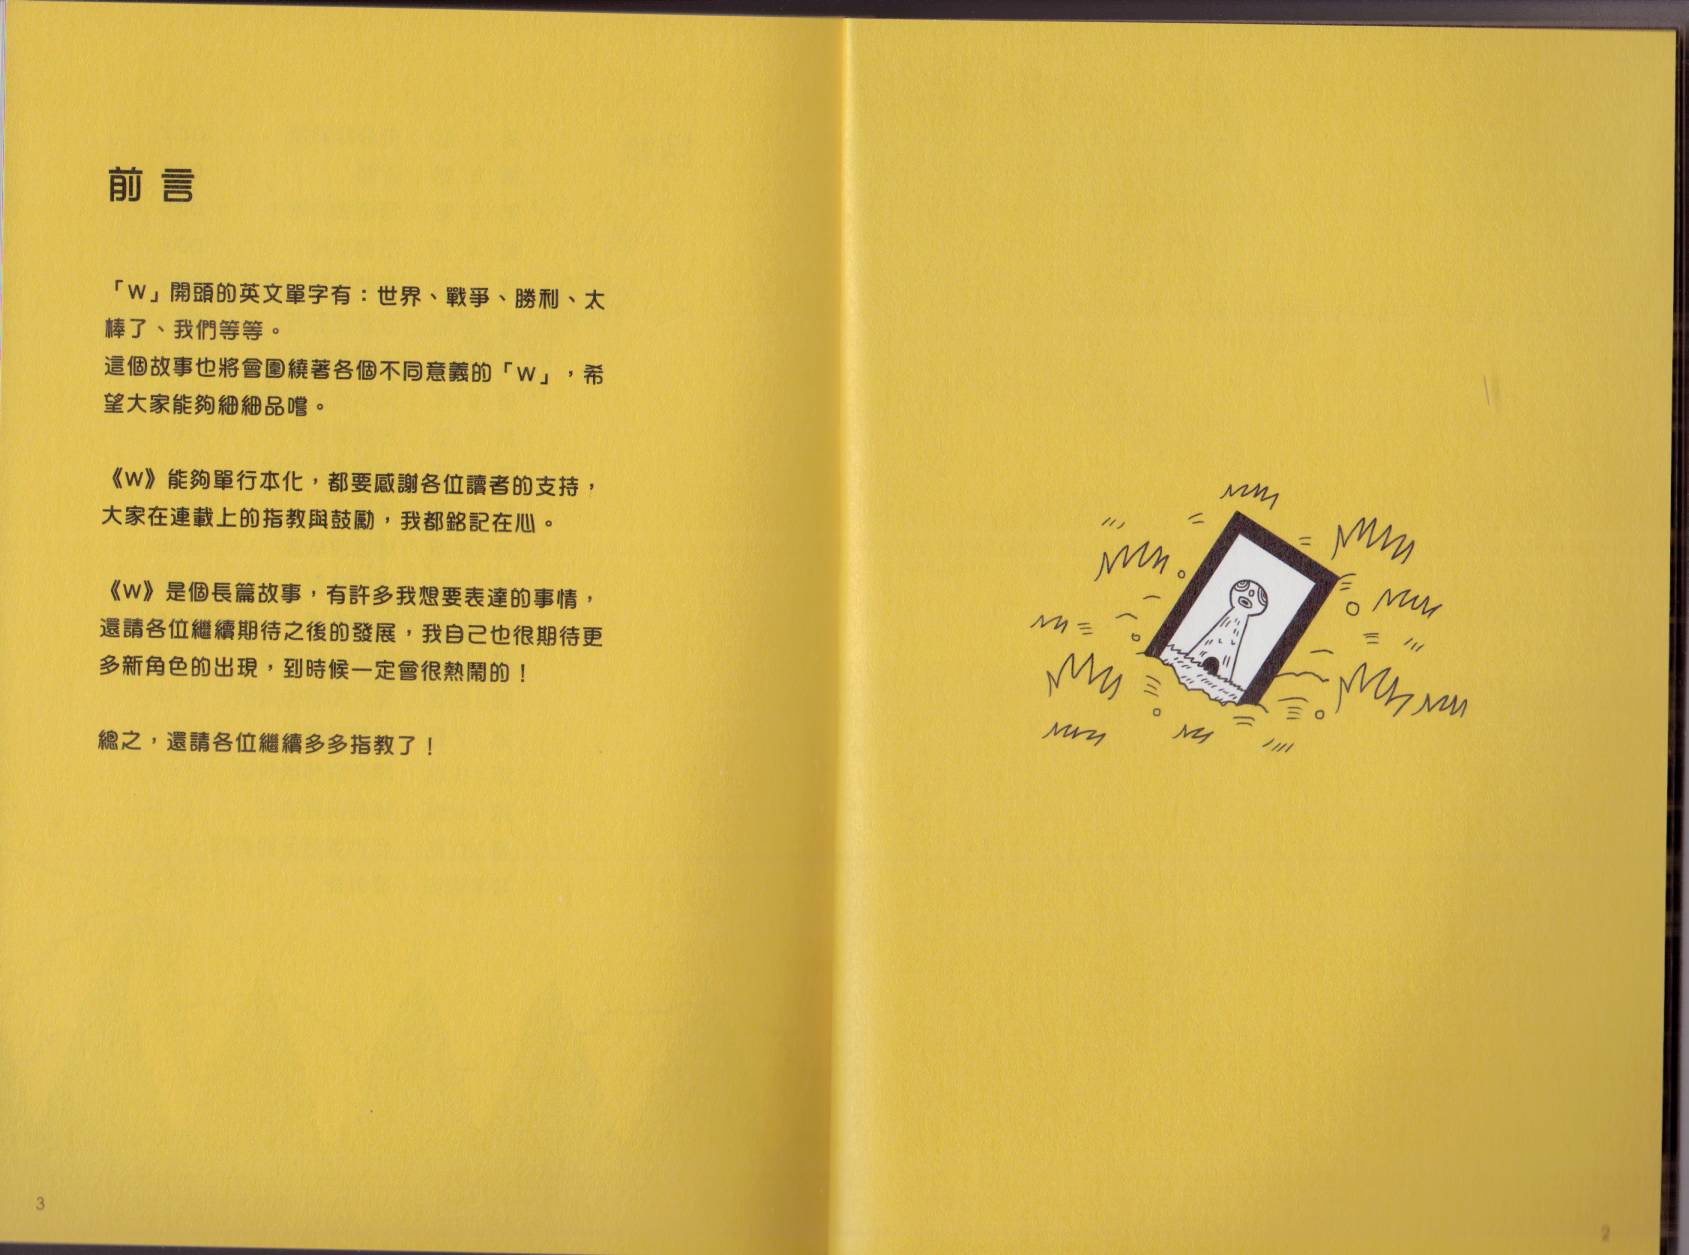 前言
「W」開頭的英文單字有：世界、戰爭、勝利、太
棒了、我們等等。
這個故事也將會圍繞著各個不同意義的「W」，希
望大家能夠細細品嚐。
《W》能夠單行本化，都要感謝各位讀者的支持，
大家在連載上的指教與鼓勵，我都銘記在心。
《W》是個長篇故事，有許多我想要表達的事情，
還請各位繼續期待之後的發展，我自己也很期待更
多新角色的出現，到時候一定會很熱鬧的！
總之，還請各位繼續多多指教了！
3
2